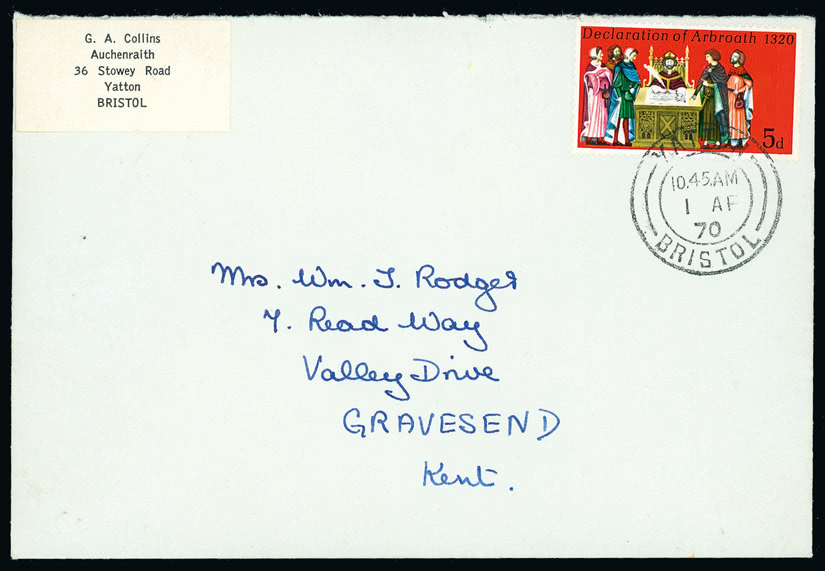 G. A. Collins
Auchenraith
36 Stowey Road
Yatton
BRISTOL
Declaration of Arbroath 1320
5d
10.45AM
1 AP
70
BRISTOL
Mrs. Wm. J. Rodger
7. Read Way
Valley Drive
GRAVESEND
Kent.